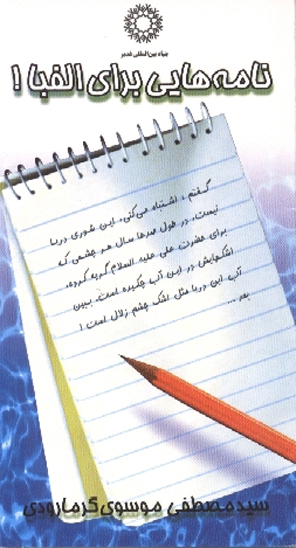 بنیاد بین‌المللی غدیر
نامه‌هایی برای الفبا !
گفتم ، اشتباه می‌کنی. این شوری دریا
نیست. در طول صدها سال هر چشمی که
برای حضرت علی علیه السلام گریه کرده،
اشکهایش در این آب چکیده است. ببین
آب این دریا مثل اشک چشم زلال است !
بعد ...
سیدمصطفی موسوی گرمارودی